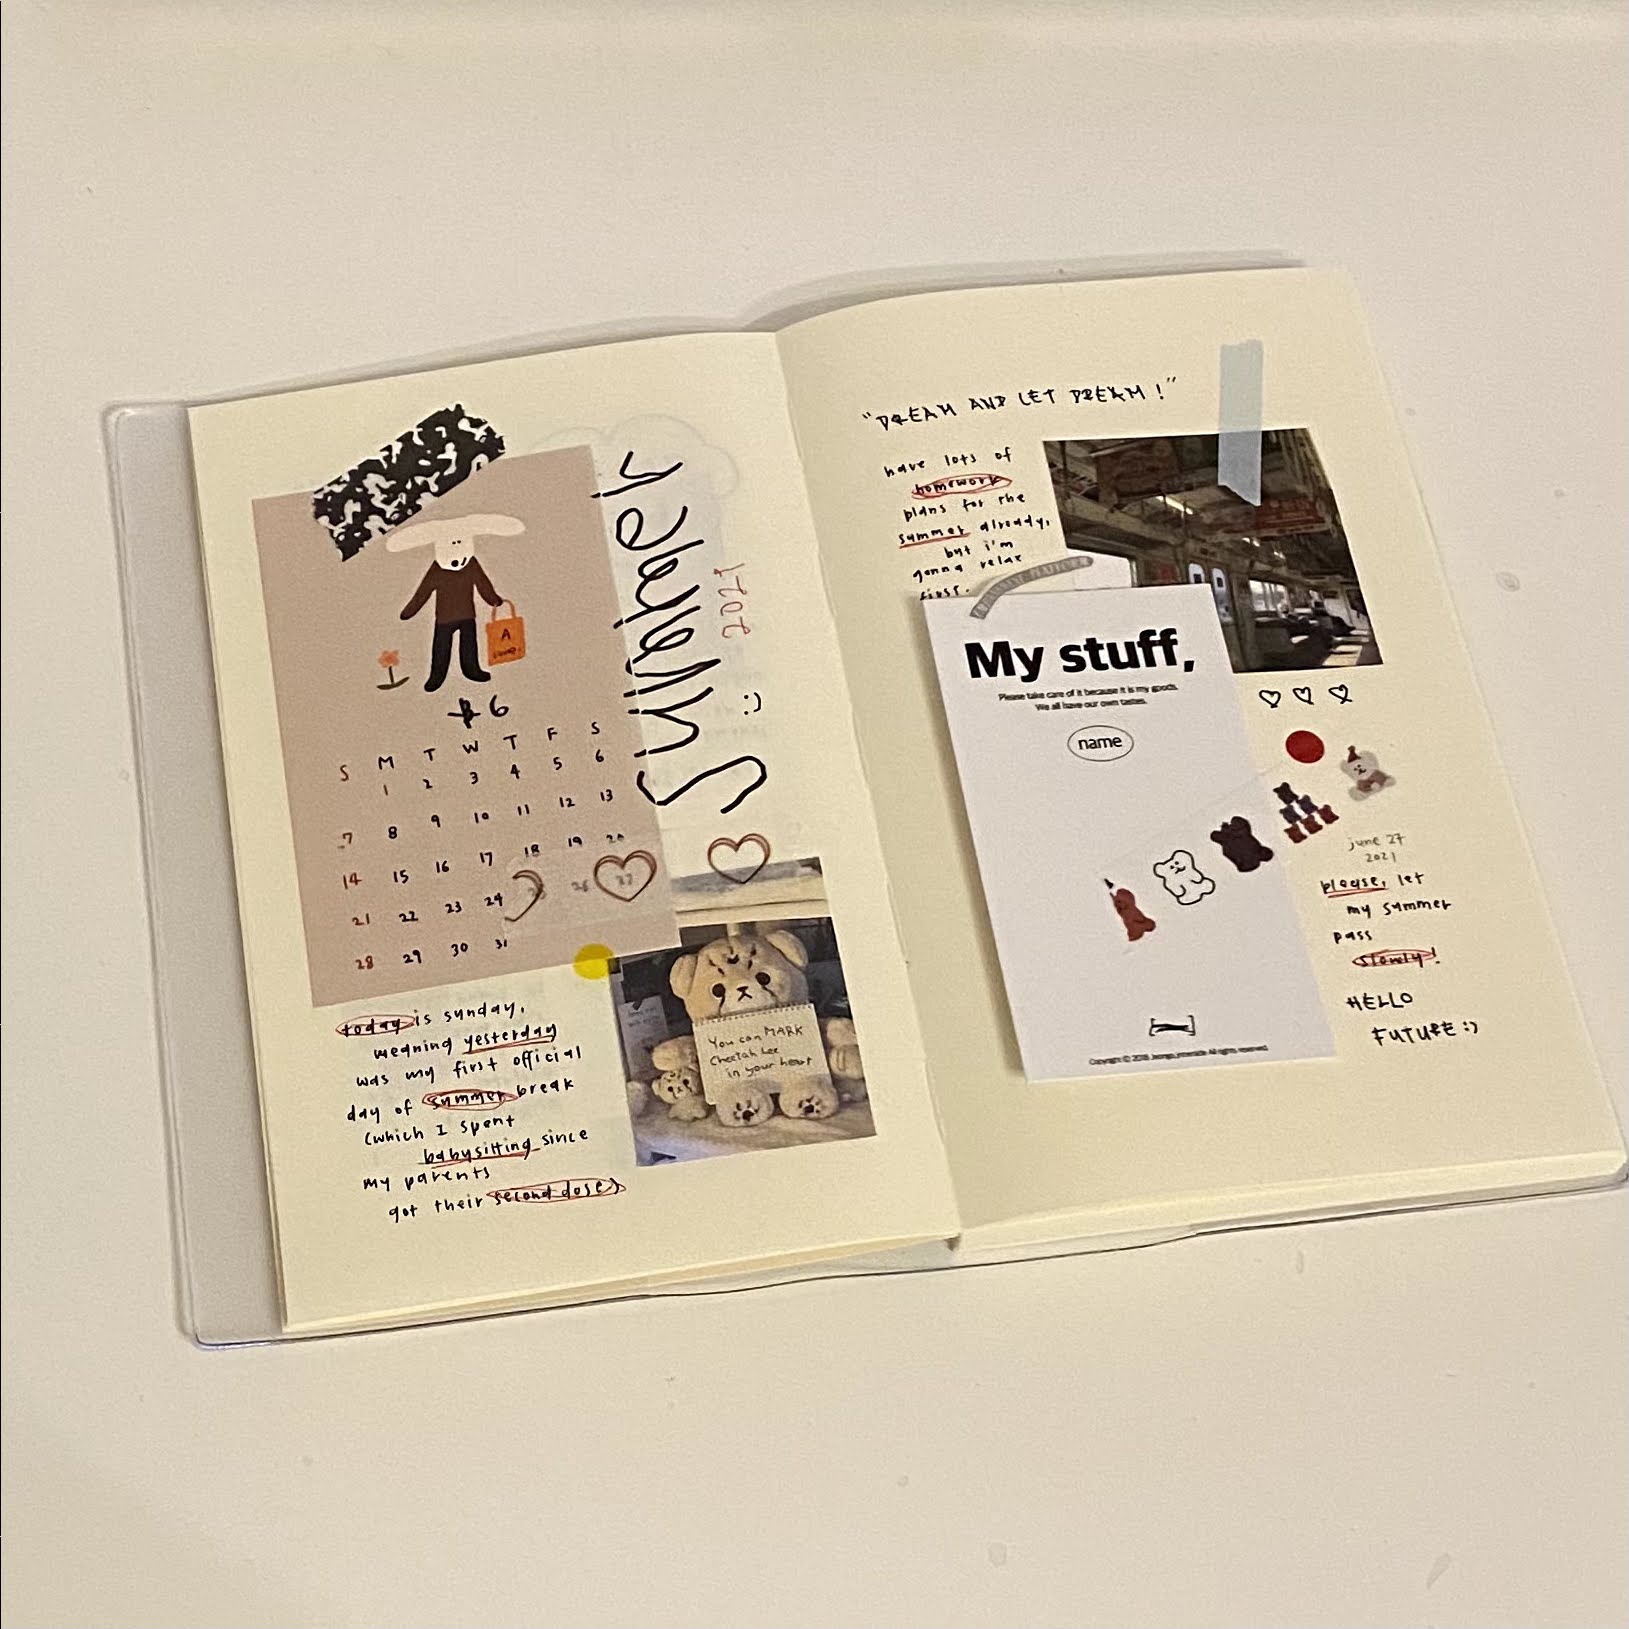 A
6
S M T W T F S
1 2 3 4 5 6
7 8 9 10 11 12 13
14 15 16 17 18 19 20
21 22 23 24 25 26 27
28 29 30 31
Summer
2021
:)
You can MARK
Cheetah Lee
in your heart
today is sunday,
meaning yesterday
was my first official
day of summer break
(which I spent
babysitting since
my parents
got their second dose)
"DREAM AND LET DREAM!"
have lots of
homework
plans for the
summer already,
but i'm
gonna relax
first.
PLATFORM
My stuff,
Please take care of it because it is my goods.
We all have our own tastes.
name
june 27
2021
please, let
my summer
pass
slowly!
HELLO
FUTURE :)